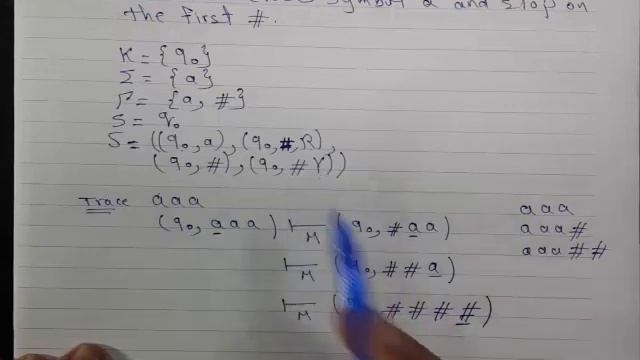 symbol a and stop on
the first #.
K = {q₀}
Σ = {a}
Γ = {a, #}
S = q₀
δ = ((q₀, a), (q₀, #, R),
(q₀, #), (q₀, # Y))
Trace aaa
(q₀, aaa) ⊢M (q₀, #aa)
⊢M (q₀, ##a)
⊢M ( ####)
aaa
aaa#
aaa##